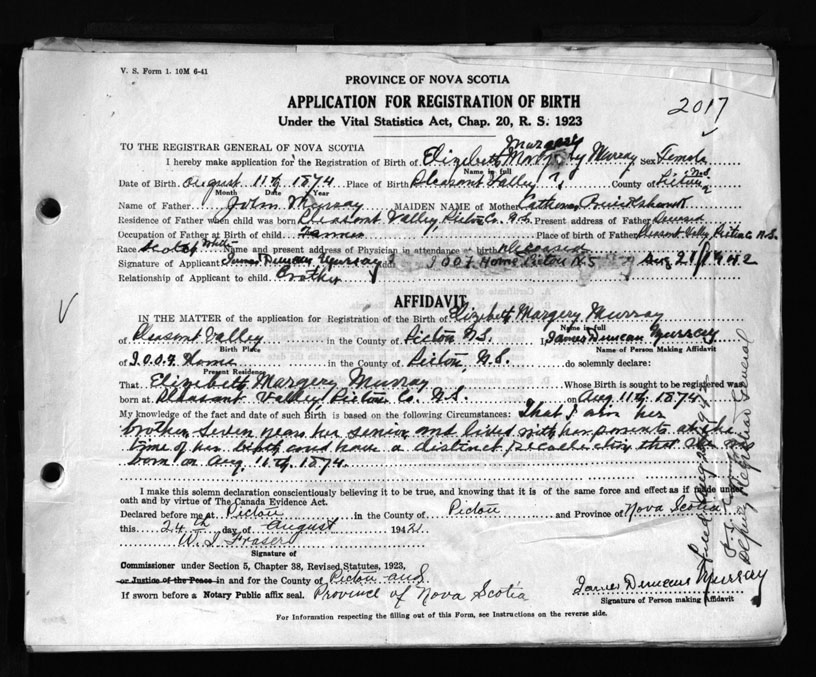 V. S. Form 1. 10M 6-41
PROVINCE OF NOVA SCOTIA
APPLICATION FOR REGISTRATION OF BIRTH
2017
Under the Vital Statistics Act, Chap. 20, R. S. 1923
TO THE REGISTRAR GENERAL OF NOVA SCOTIA
Margery
I hereby make application for Registration of Birth of Elizabeth Murray Sex Female
Name in full
Date of Birth August 11th 1874 Place of Birth Pleasant Valley County of Pictou N.S.
Month Date Year
Name of Father John Murray MAIDEN NAME of Mother
Residence of Father when child was born Pleasant Valley, Pictou Co. N.S. Present address of Father Deceased
Occupation of Father at Birth of child Farmer Place of birth of Father Pleasant Valley Pictou Co N.S.
Race Scotch White Name and present address of Physician in attendance at birth Deceased
Signature of Applicant James Duncan Murray Add. I.O.O.F. Home Pictou N.S. Aug 21/1942
Relationship of Applicant to child Brother
AFFIDAVIT
IN THE MATTER of the application for Registration of the Birth of Elizabeth Margery Murray
Name in full
of Pleasant Valley in the County of Pictou N.S. I, James Duncan Murray
Birth Place Name of Person Making Affidavit
of I.O.O.F. Home in the County of Pictou, N.S. do solemnly declare:
Present Residence
That Elizabeth Margery Murray Whose Birth is sought to be registered was
born at Pleasant Valley, Pictou Co. N.S. on Aug. 11th, 1874
My knowledge of the fact and date of such Birth is based on the following Circumstances: That I am her
brother seven years her senior and lived with her parents at the
time of her birth and have a distinct recollection that she was
born on Aug. 11th, 1874.
I make this solemn declaration conscientiously believing it to be true, and knowing that it is of the same force and effect as if made under
oath and by virtue of The Canada Evidence Act.
Declared before me at Pictou in the County of Pictou and Province of Nova Scotia
this 24th day of August 1942
W. I. Fraser
Signature of
Commissioner under Section 5, Chapter 38, Revised Statutes, 1923,
or Justice of the Peace in and for the County of Pictou and
If sworn before a Notary Public affix seal. Province of Nova Scotia
James Duncan Murray
Signature of Person making Affidavit
For Information respecting the filling out of this Form, see Instructions on the reverse side.
Deputy Registrar General